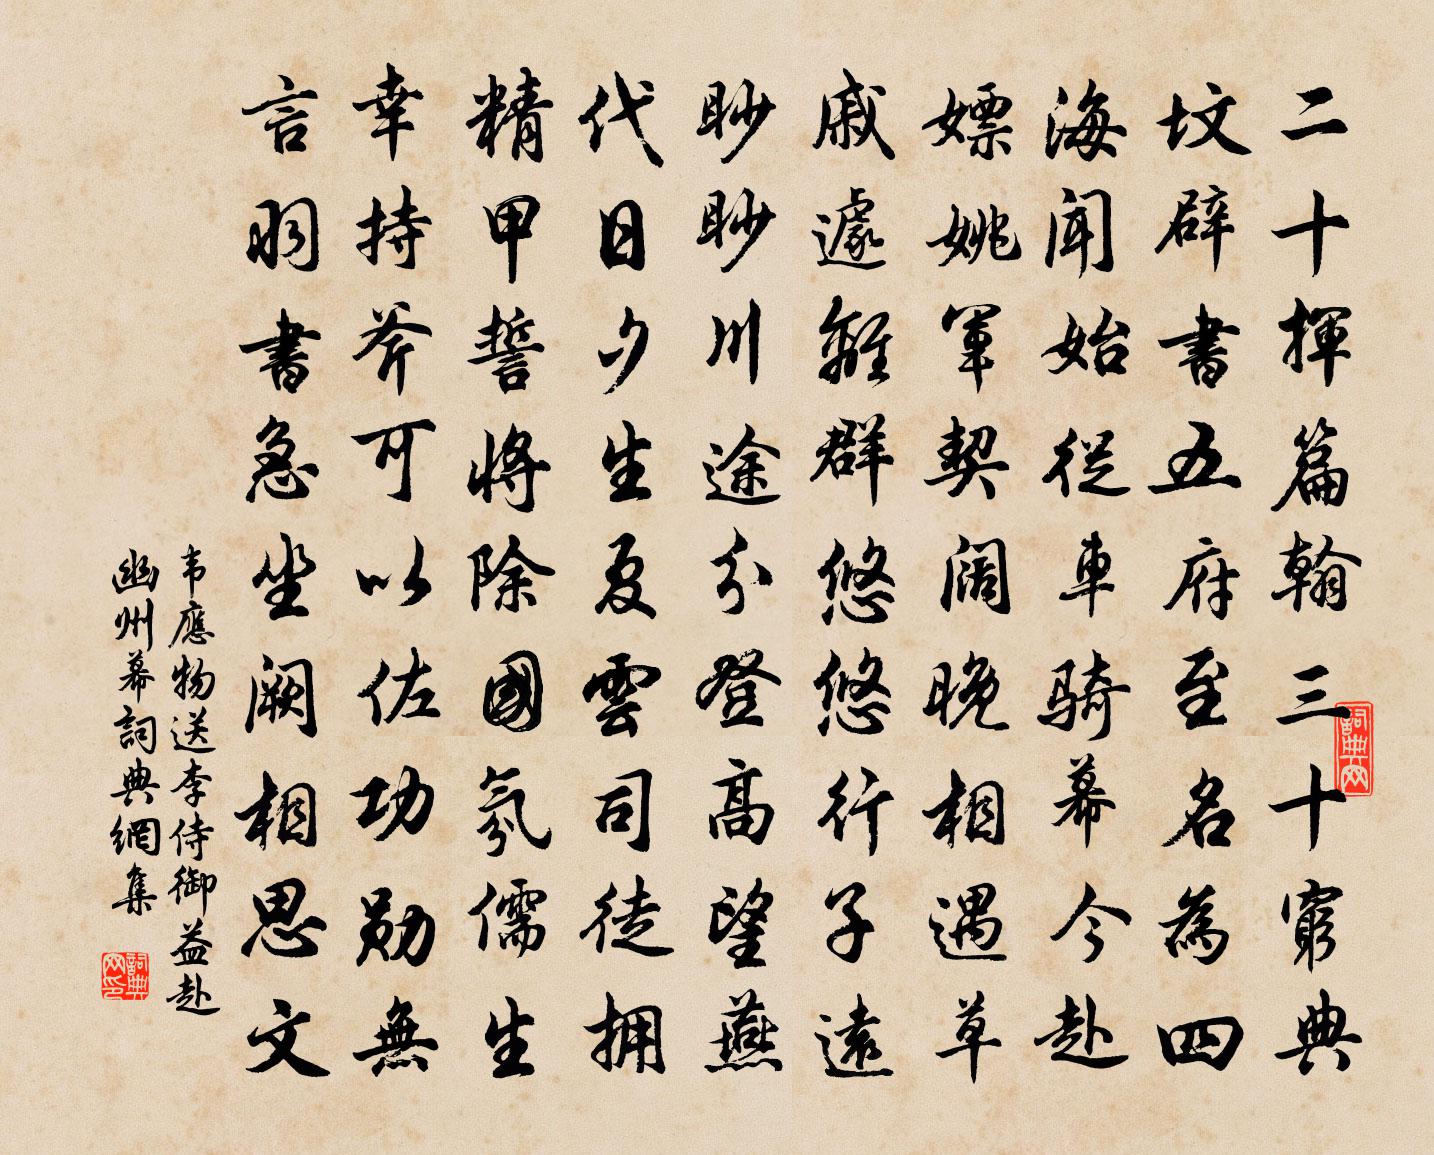 二十揮篇翰三十窮典
坟辟書五府至名為四
海聞始從車騎幕今赴
嫖姚軍契闊晚相遇草
戚遽離群悠悠行子遠
眇眇川途分登高望燕
代日夕生夏雲司徒拥
精甲誓將除國氛儒生
幸持斧可以佐功勋無
言羽書急坐闕相思文
韦應物送李侍御益赴
幽州幕詞典網集
詞典网
詞典网印